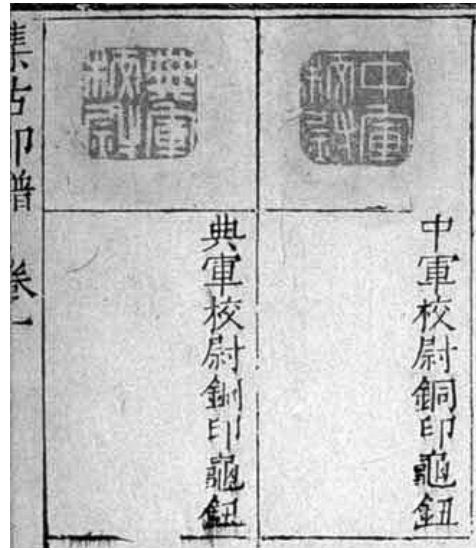 中軍
校尉
中軍校尉銅印龜鈕
典軍
校尉
典軍校尉銅印龜鈕
集古印譜 卷一